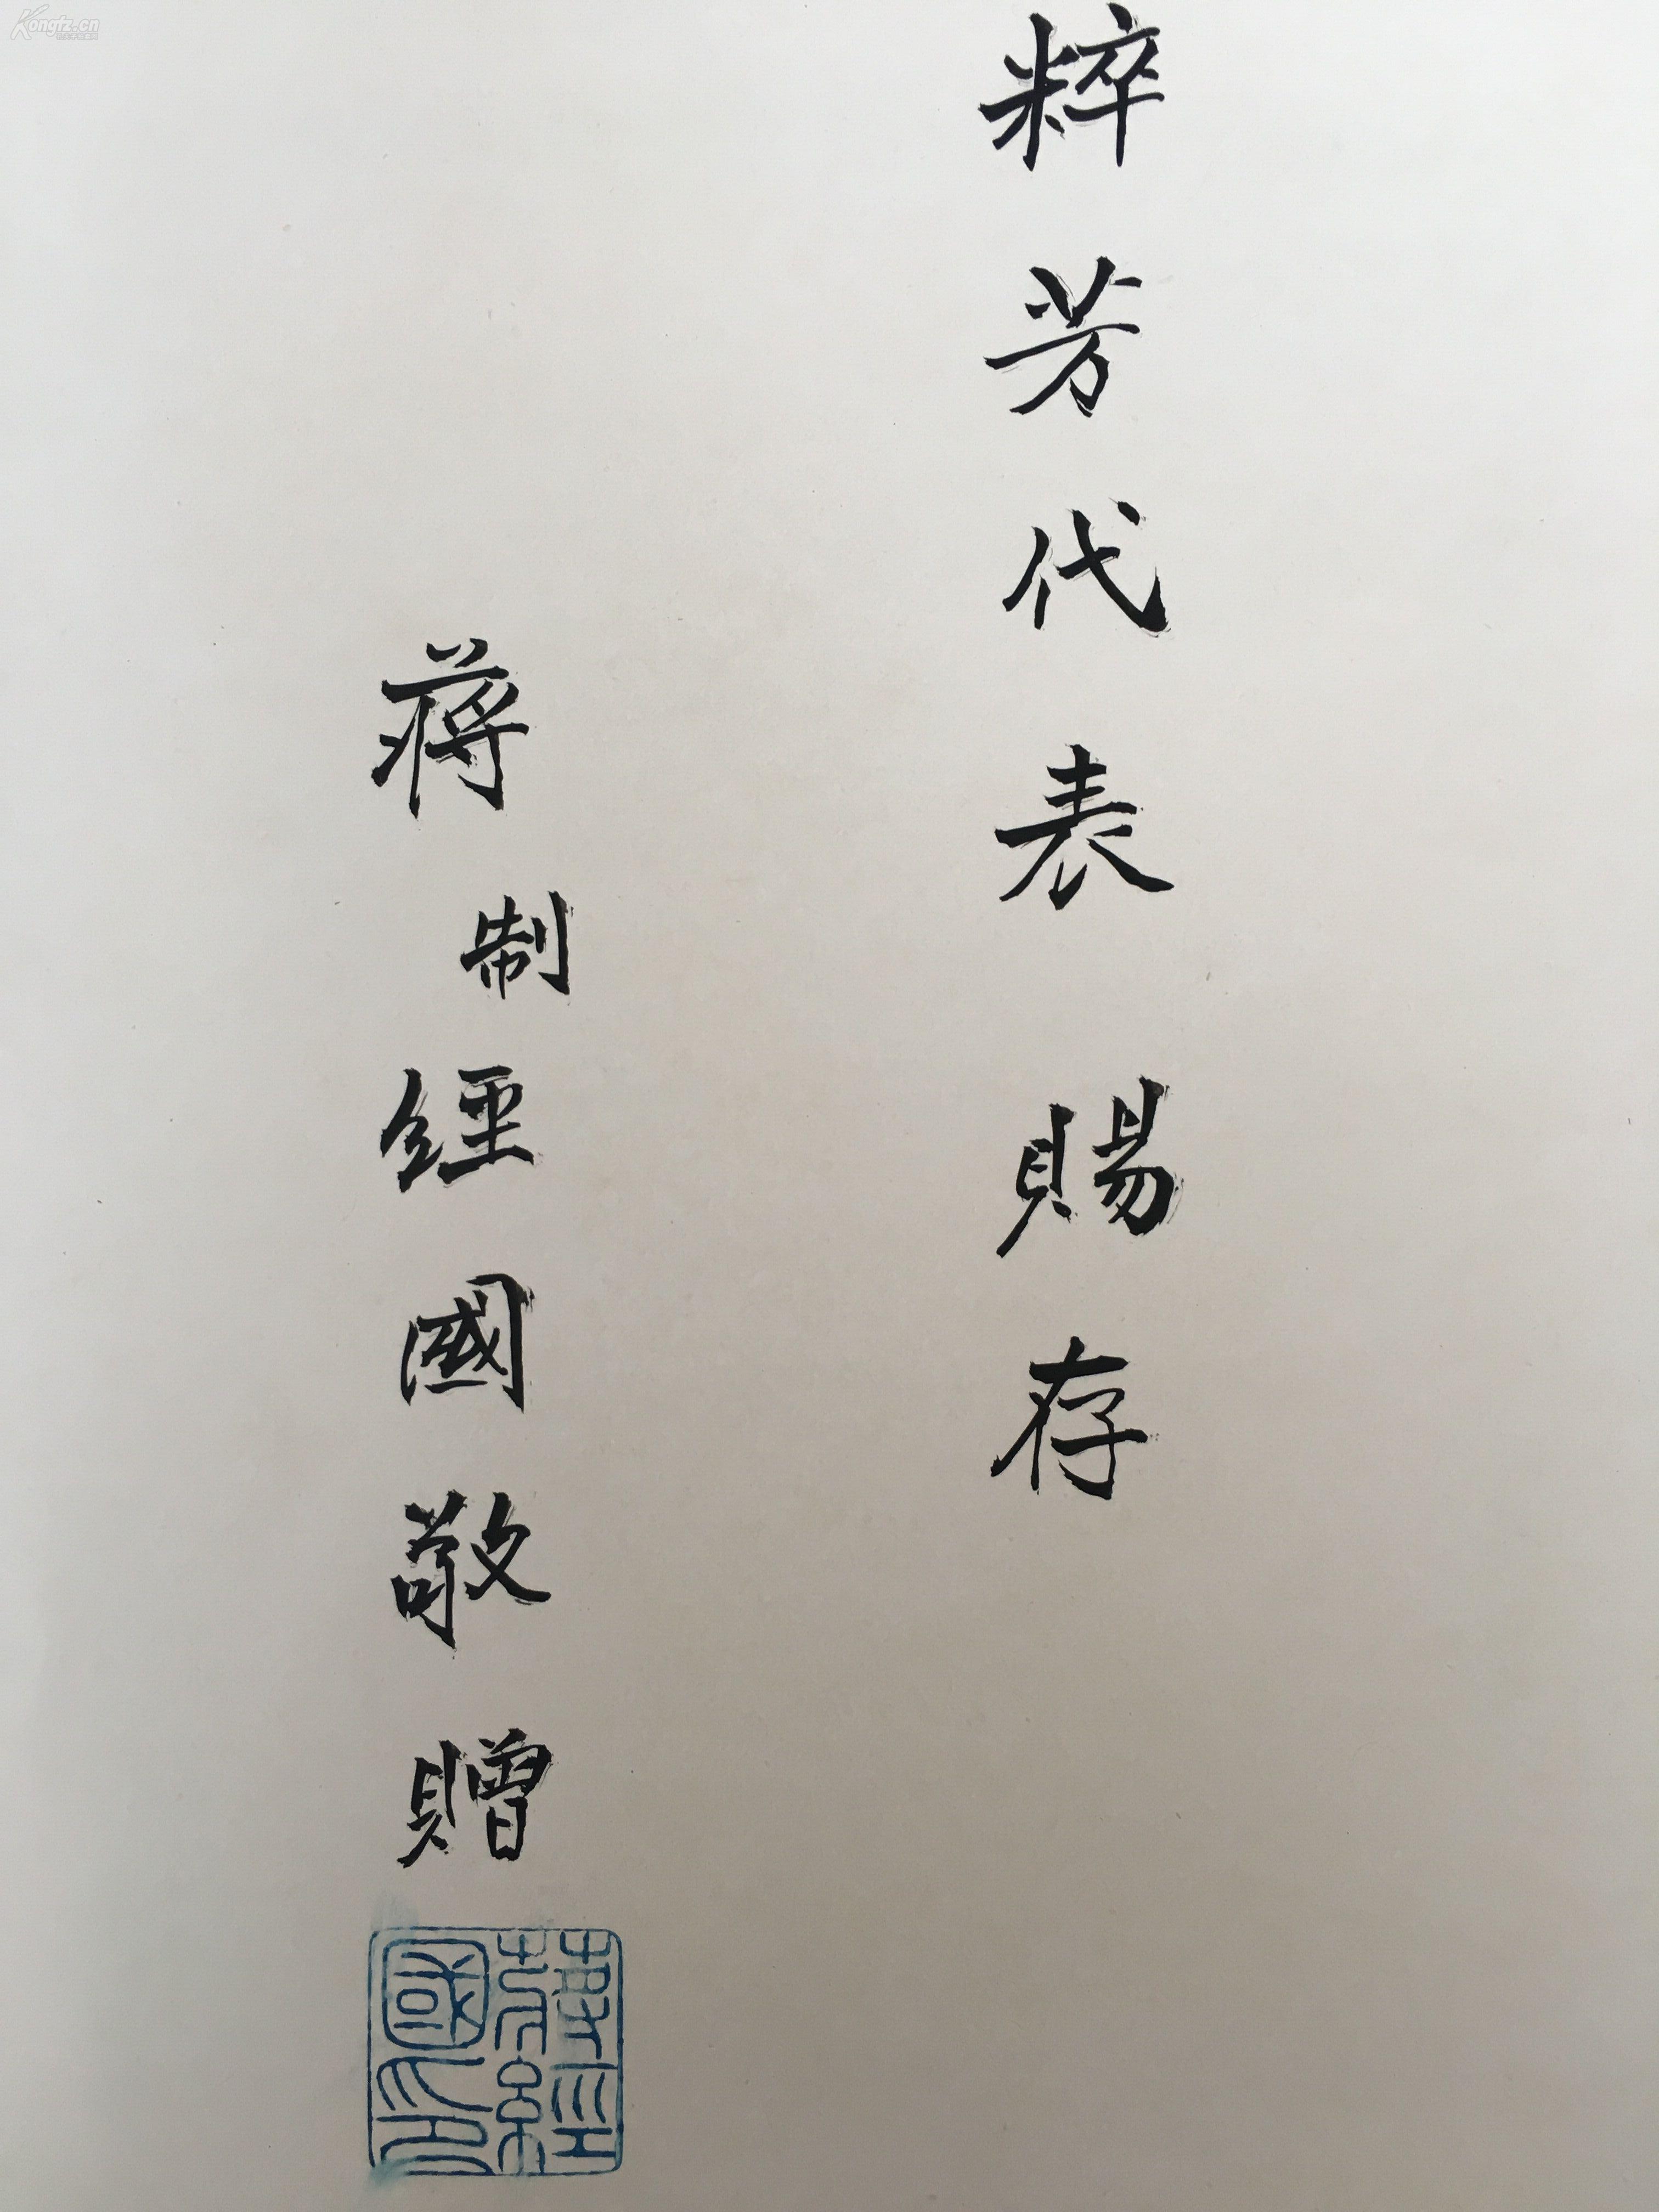 粹芳代表賜存
蔣制經國敬贈
蔣經國印
Kongfz.cn